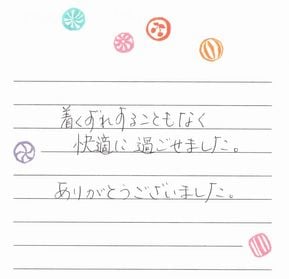 着くずれすることもなく
快適に過ごせました。
ありがとうございました。